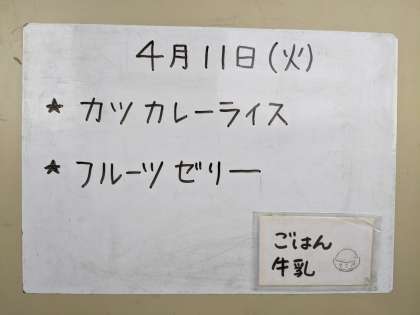 4月11日(火)
★ カツカレーライス
★ フルーツゼリー
ごはん
牛乳